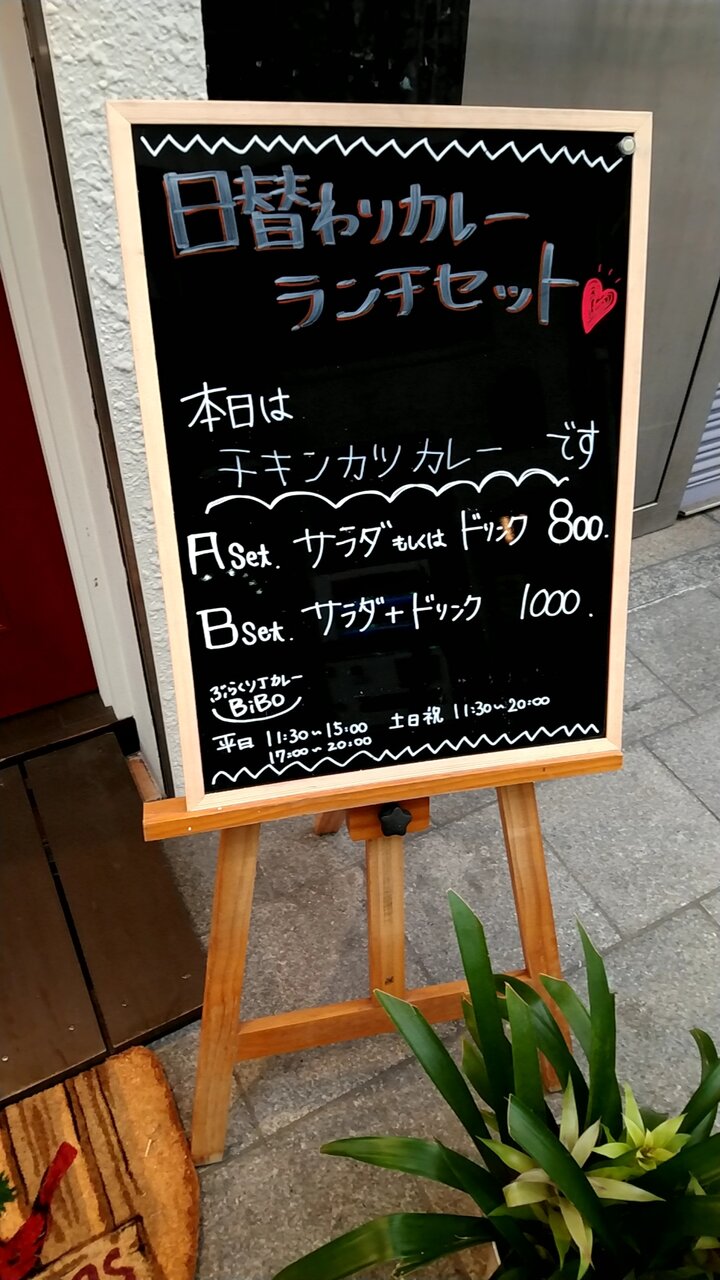 日替わりカレー
ランチセット
本日は
チキンカツカレー です
A Set. サラダ もしくは ドリンク 800.
B Set. サラダ+ドリンク 1000.
ぶらくり丁カレー
BiBO
平日 11:30~15:00 土日祝 11:30~20:00
17:00~20:00